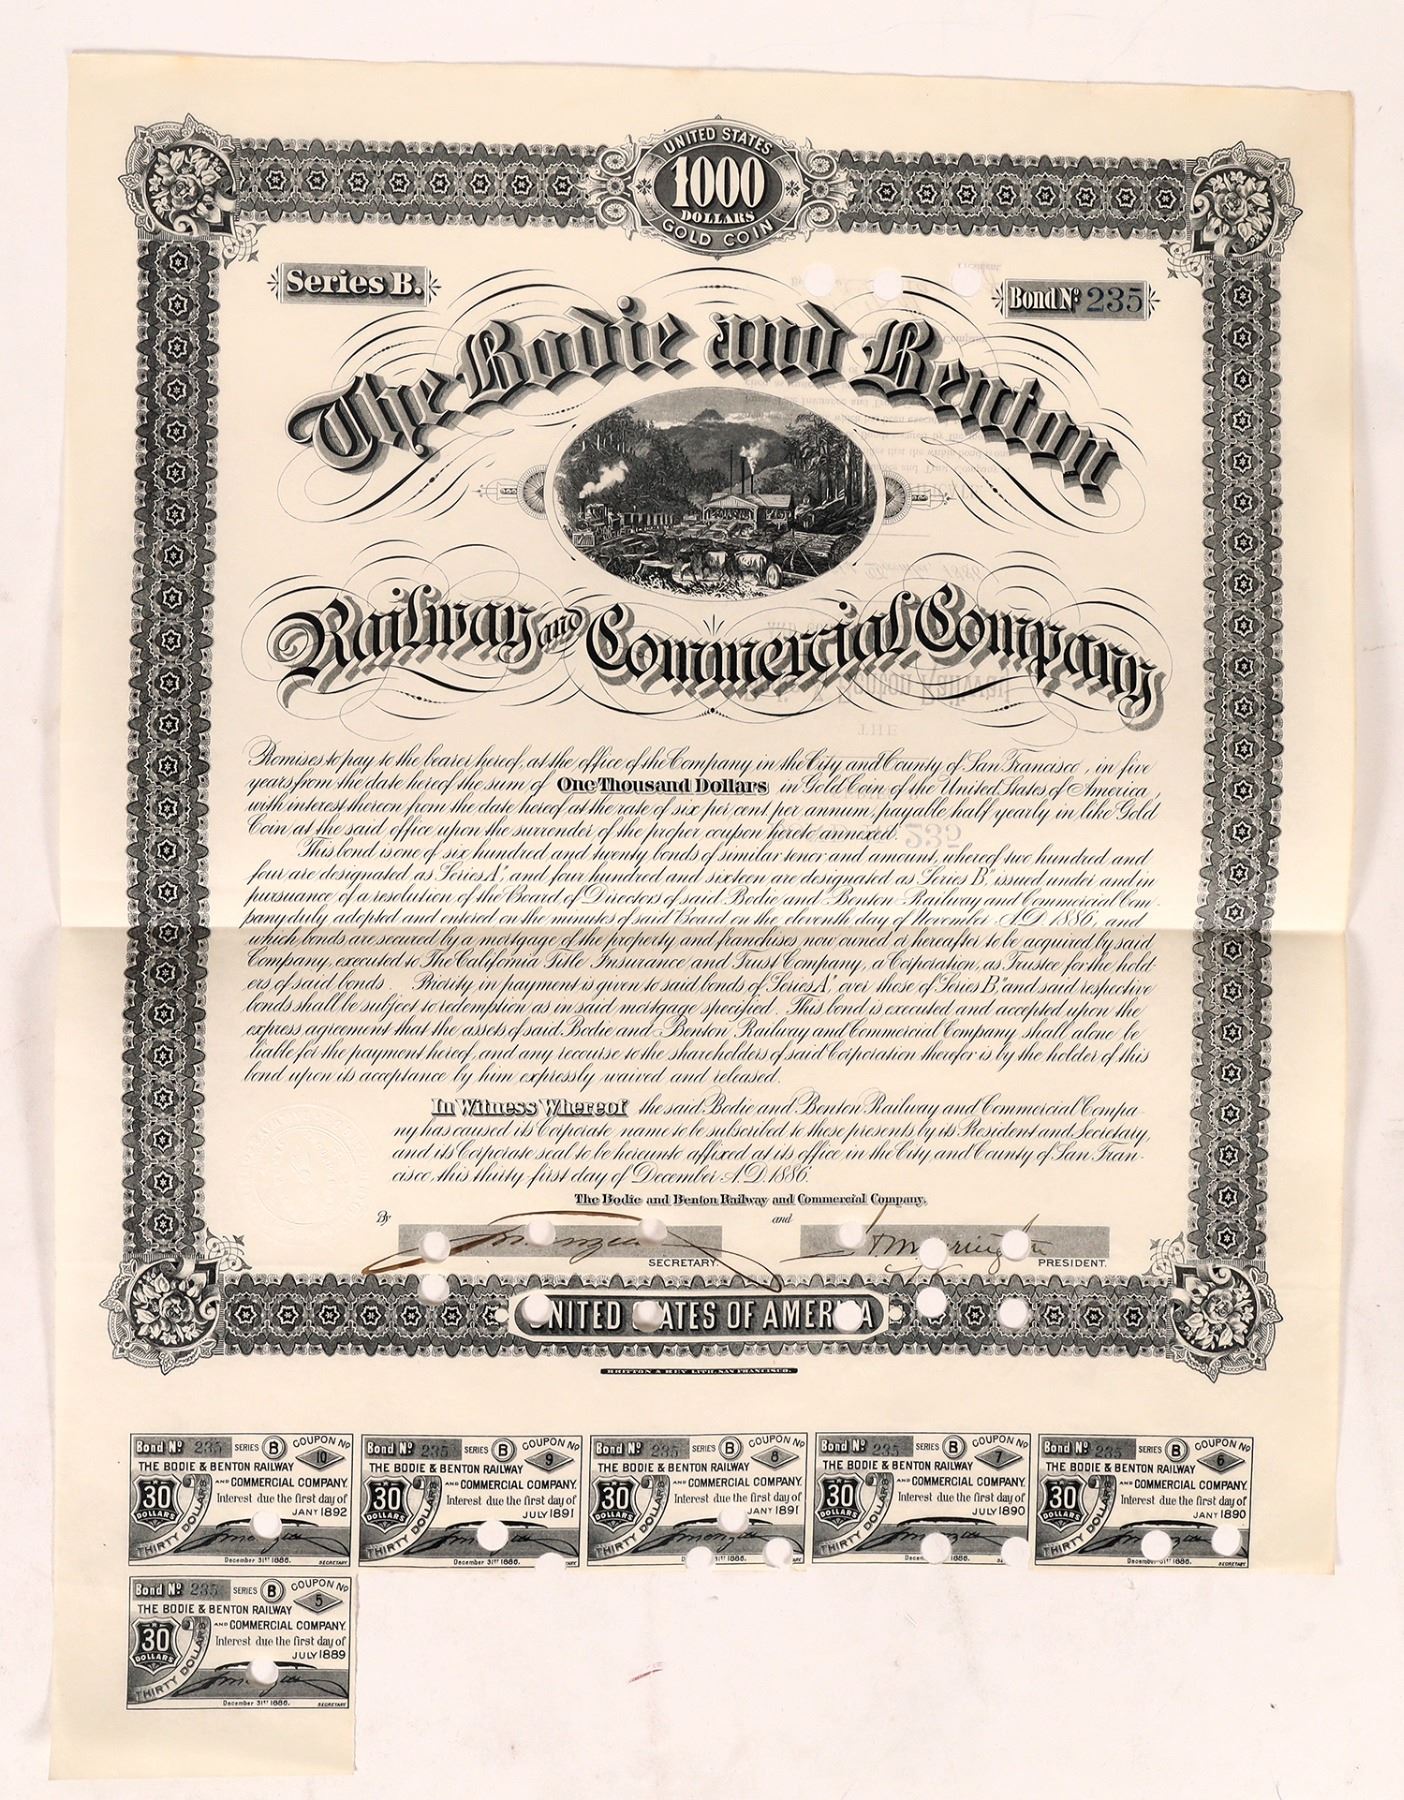 UNITED STATES
1000
DOLLARS
GOLD COIN
Series B.
Bond No. 235
The Bodie and Benton
Railway and Commercial Company
Promises to pay to the bearer hereof, at the office of the Company in the City and County of San Francisco, in five
years from the date hereof the sum of One Thousand Dollars in Gold Coin of the United States of America,
with interest thereon from the date hereof at the rate of six per cent per annum, payable half yearly in like Gold
Coin at the said office upon the surrender of the proper coupon hereto annexed.
This bond is one of six hundred and twenty bonds of similar tenor and amount, whereof two hundred and
four are designated as Series "A", and four hundred and sixteen are designated as Series "B", issued under and in
pursuance of a resolution of the Board of Directors of said Bodie and Benton Railway and Commercial Com-
pany duly adopted and entered on the minutes of said Board on the eleventh day of November A.D. 1886, and
which bonds are secured by a mortgage of the property and franchises now owned or hereafter to be acquired by said
Company, executed to The California Title Insurance and Trust Company, a Corporation, as Trustee for the hold-
ers of said bonds. Priority in payment is given to said bonds of Series "A" over those of Series "B", and said respective
bonds shall be subject to redemption as in said mortgage specified. This bond is executed and accepted upon the
express agreement that the assets of said Bodie and Benton Railway and Commercial Company shall alone be
liable for the payment hereof, and any recourse to the shareholders of said Corporation therefor is by the holder of this
bond upon its acceptance by him expressly waived and released.
In Witness Whereof the said Bodie and Benton Railway and Commercial Compa-
ny has caused its Corporate name to be subscribed to these presents by its President and Secretary,
and its Corporate seal to be hereunto affixed at its office in the City and County of San Fran-
cisco, this thirty-first day of December A.D. 1886.
The Bodie and Benton Railway and Commercial Company.
By
and
SECRETARY.
PRESIDENT.
UNITED STATES OF AMERICA
BRITTON & REY LITH. SAN FRANCISCO.
Bond No. 235 SERIES B COUPON No. 10
THE BODIE & BENTON RAILWAY
AND COMMERCIAL COMPANY.
30 DOLLARS
THIRTY DOLLARS
Interest due the first day of
JANY 1892
December 31st 1886.
SECRETARY
Bond No. 235 SERIES B COUPON No. 9
THE BODIE & BENTON RAILWAY
AND COMMERCIAL COMPANY.
30 DOLLARS
THIRTY DOLLARS
Interest due the first day of
JULY 1891
December 31st 1886.
Bond No. 235 SERIES B COUPON No. 8
THE BODIE & BENTON RAILWAY
AND COMMERCIAL COMPANY.
30 DOLLARS
THIRTY DOLLARS
Interest due the first day of
JANY 1891
31st 1886.
Bond No. 235 SERIES B COUPON No. 7
THE BODIE & BENTON RAILWAY
AND COMMERCIAL COMPANY.
30 DOLLARS
THIRTY DOLLARS
Interest due the first day of
JULY 1890
1886.
Bond No. 235 SERIES B COUPON No. 6
THE BODIE & BENTON RAILWAY
AND COMMERCIAL COMPANY.
30 DOLLARS
THIRTY DOLLARS
Interest due the first day of
JANY 1890
December 31st 1886.
SECRETARY
Bond No. 235 SERIES B COUPON No. 5
THE BODIE & BENTON RAILWAY
AND COMMERCIAL COMPANY.
30 DOLLARS
THIRTY DOLLARS
Interest due the first day of
JULY 1889
December 31st 1886.
SECRETARY